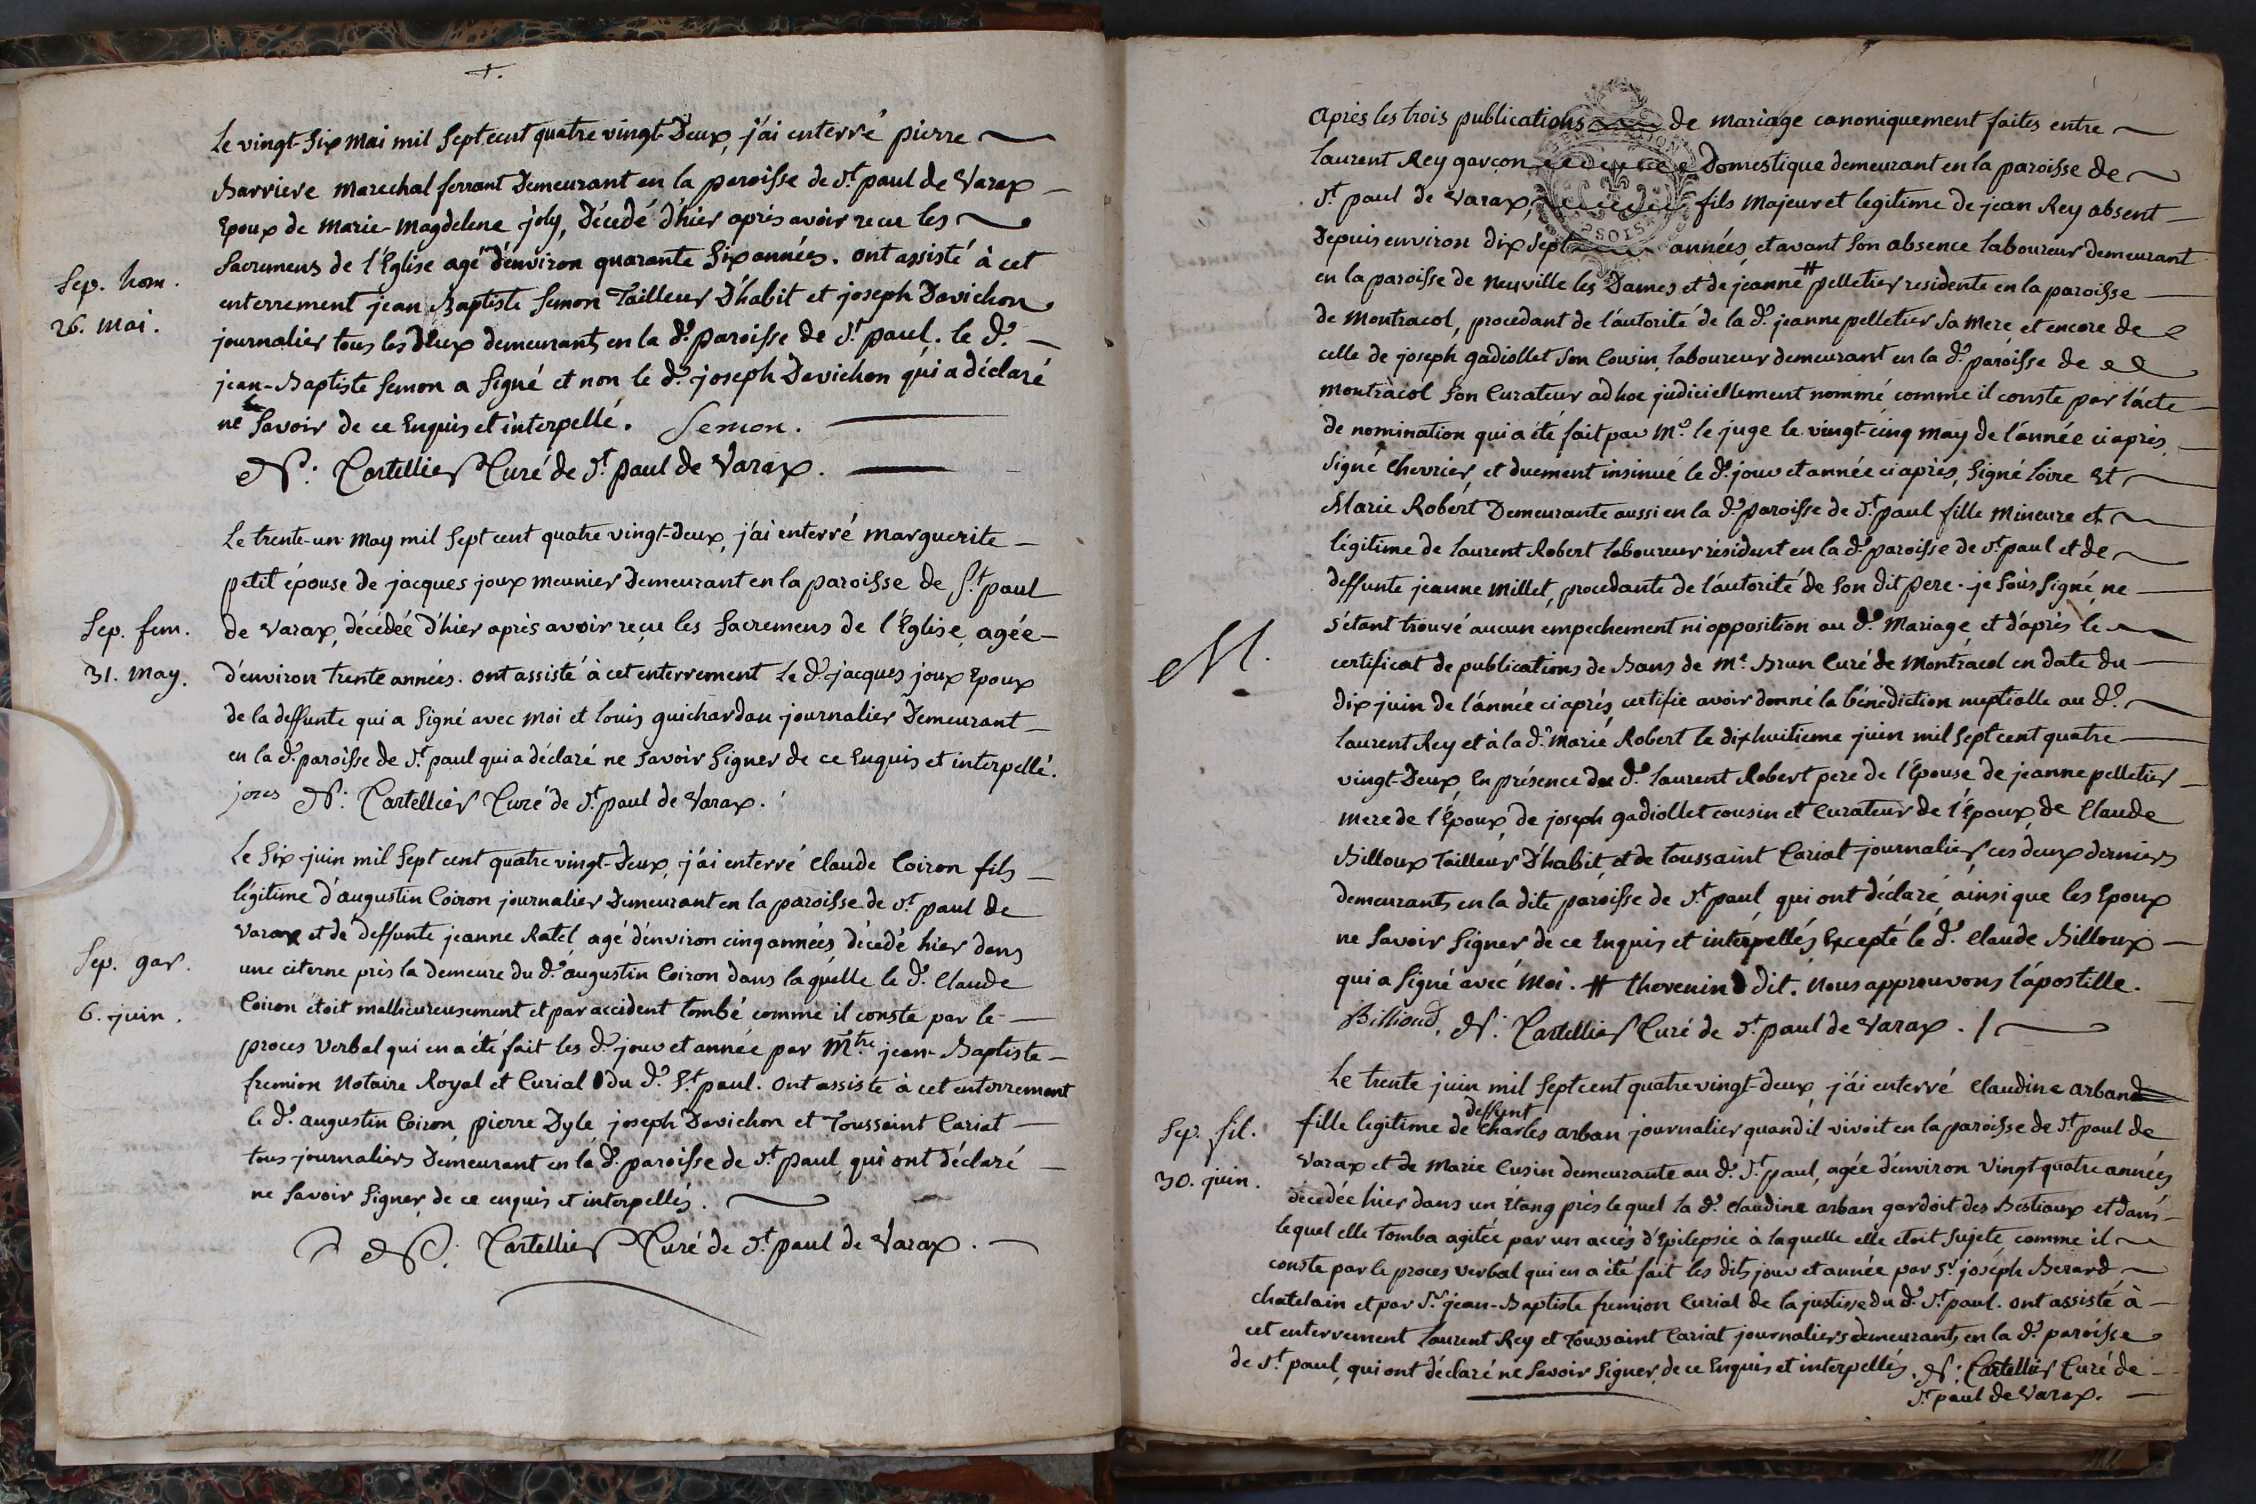 Le vingt-six mai mil sept cent quatre vingt-Deux, j'ai enterré pierre
Barriere marechal ferrant Demeurant en la paroisse de St. paul de Varax
Epoux de marie-magdelene joly, décédé d'hier après avoir recu les
Sacremens de l'Eglise agé d'environ quarante six années. ont assisté à cet
Sep. hom.
26. mai.
enterrement jean Baptiste Semon Tailleur D'habit et joseph Davichon
journalier tous les deux demeurants en la de. paroisse de St. paul. le d.
jean-Baptiste Semon a signé et non le d. joseph Davichon qui a déclaré
ne savoir de ce Enquis et interpellé. Semon.
N: Cartellier Curé de St. paul de Varax.
Le trente-un May mil sept cent quatre vingt-deux, j'ai enterré marguerite
petit épouse de jacques joux meunier Demeurant en la paroisse de St. paul
Sep. fem.
31. May.
de Varax, décédée d'hier après avoir reçu les Sacremens de l'Eglise, agée
d'environ trente années. ont assisté à cet enterrement Le d. jacques joux Epoux
de la deffunte qui a signé avec moi et louis guichardan journalier Demeurant
en la de. paroisse de St. paul qui a déclaré ne savoir Signer de ce Enquis et interpellé.
joux N: Cartellier Curé de St. paul de Varax.
Le six juin mil sept cent quatre vingt-Deux, j'ai enterré Claude Coiron fils
légitime d'augustin Coiron journalier Demeurant en la paroisse de St. paul de
Varax et de deffunte jeanne Ratel, agé d'environ cinq années, décédé hier dans
Sep. gar.
6. juin.
une citerne près la demeure du d. augustin Coiron dans la quelle le d. Claude
Coiron étoit malheureusement et par accident tombé comme il conste par le
proces verbal qui en a été fait les d. jour et année par Mtre. jean-Baptiste
fremion Notaire Royal et Curial du d. St. paul. ont assisté à cet enterrement
le d. augustin Coiron, pierre Dyle joseph Davichon et Toussaint Cariat
tous journaliers Demeurant en la de. paroisse de St. paul, qui ont déclaré
ne savoir signer, de ce enquis et interpellés.
N: Cartellier Curé de St. paul de Varax.
après les trois publications de mariage canoniquement faites entre
laurent Rey garçon Domestique demeurant en la paroisse de
St. paul de Varax, fils Majeur et legitime de jean Rey absent
Depuis environ dix sept années, et avant son absence laboureur demeurant
en la paroisse de neuville les Dames et de jeanne # pelletier residente en la paroisse
de montracol, procedant de l'autorité de la de. jeanne pelletier sa mere et encore de
celle de joseph gadiollet son Cousin, laboureur demeurant en la de. paroisse de
montracol son Curateur ad hoc judiciellement nommé comme il conste par l'acte
de nomination qui a été fait par Mr. le juge le vingt-cinq may de l'année ci après,
signé Chevrier, et duement insinué le d. jour et année ci après, signé loire Et
Marie Robert Demeurante aussi en la de. paroisse de St. paul fille mineure et
légitime de laurent Robert laboureur résident en la de. paroisse de St. paul et de
deffunte jeanne Millet, procedante de l'autorité de son dit pere. je soussigné, ne
s'étant trouvé aucun empechement ni opposition au d. Mariage, et d'après le
M.
certificat de publications de Bans de Mr. Brun Curé de Montracol en date du
dix juin de l'année ci après, certifie avoir donné la bénédiction nuptialle au d.
laurent Rey et à la de. Marie Robert le dix huitieme juin mil sept cent quatre
vingt-Deux, En présence du d. laurent Robert pere de l'Epouse, de jeanne pelletier
mere de l'Epoux, de joseph gadiollet cousin et curateur de l'Epoux, de Claude
Billoux Tailleur D'habit, et de toussaint Cariat journalier ces deux derniers
demeurants en la dite paroisse de St. paul, qui ont déclaré ainsi que les Epoux
ne savoir signer de ce Enquis et interpellés, Excepté le d. Claude Billoux
qui a signé avec Moi. # thevenin dit. Nous approuvons l'apostille.
Billioud, N: Cartellier Curé de St. paul de Varax.
Le trente juin mil sept cent quatre vingt-deux, j'ai enterré Claudine arban
deffunt
Sep. fil.
30. juin.
fille legitime de Charles arban journalier quand il vivoit en la paroisse de St. paul de
Varax et de Marie Cusin demeurante au d. St. paul, agée d'environ vingt quatre années
décédée hier dans un Etang près le quel la de. Claudine arban gardoit des Bestiaux et dans
lequel elle tomba agitée par un accès d'Epilepsie à laquelle elle étoit sujete comme il
conste par le proces verbal qui en a été fait les dits jour et année par Sr. joseph Berard
chatelain et par Sr. jean-Baptiste fremion Curial de la justice du d. St. paul. ont assisté à
cet enterrement laurent Rey et Toussaint Cariat journaliers demeurants en la de. paroisse
de St. paul, qui ont déclaré ne savoir signer, de ce Enquis et interpellés. N: Cartellier Curé de
St. paul de Varax.